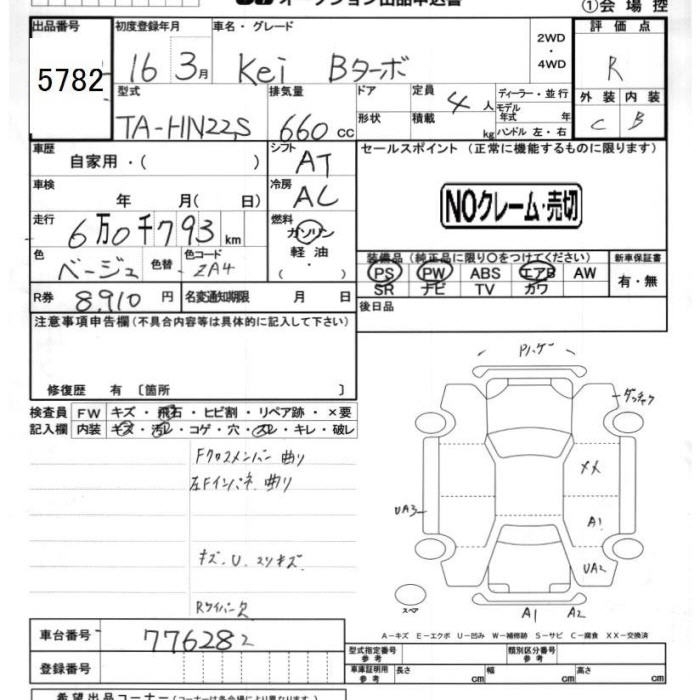 オークション出品申込書
①会場控
出品番号 初度登録年月 車名・グレード 評価点
5782 16 3月 Kei Bターボ 2WD・4WD R
型式 排気量 ドア 定員 4人 ディーラー・並行 外装 内装
TA-HN22S 660cc 形状 積載 kg モデル年式 年 ハンドル 左・右 C B
車歴 自家用・( ) シフト AT セールスポイント (正常に機能するものに限ります)
車検 年 月( 日) 冷房 AC
NOクレーム・売切
走行 6万0千793km 燃料 ガソリン 軽油 ( ・ )
色 ベージュ 色替 色コード ZA4
装備品 (純正品に限り○をつけてください) 新車保証書
PS PW ABS エアB AW 有・無
SR ナビ TV カワ
R券 8,910円 名変通知期限 月 日 後日品
注意事項申告欄 (不具合内容等は具体的に記入して下さい)
修復歴 有 〔箇所 〕
検査員 FW キズ・飛石・ヒビ割・リペア跡・×要
記入欄 内装 キズ・汚レ・コゲ・穴・スレ・キレ・破レ
Fクロスメンバー 曲り
左Fインパネ 曲り
キズ.U.スリキズ
Rワイパー欠
XX
UA3
A1
UA2
スペア
A1 A2
A-キズ E-エクボ U-凹み W-補修跡 S-サビ C-腐食 XX-交換済
車台番号 776282
登録番号
型式指定番号 参考 類別区分番号 参考
車庫証明用 参考 長さ cm 幅 cm 高さ cm
希望出品コーナー